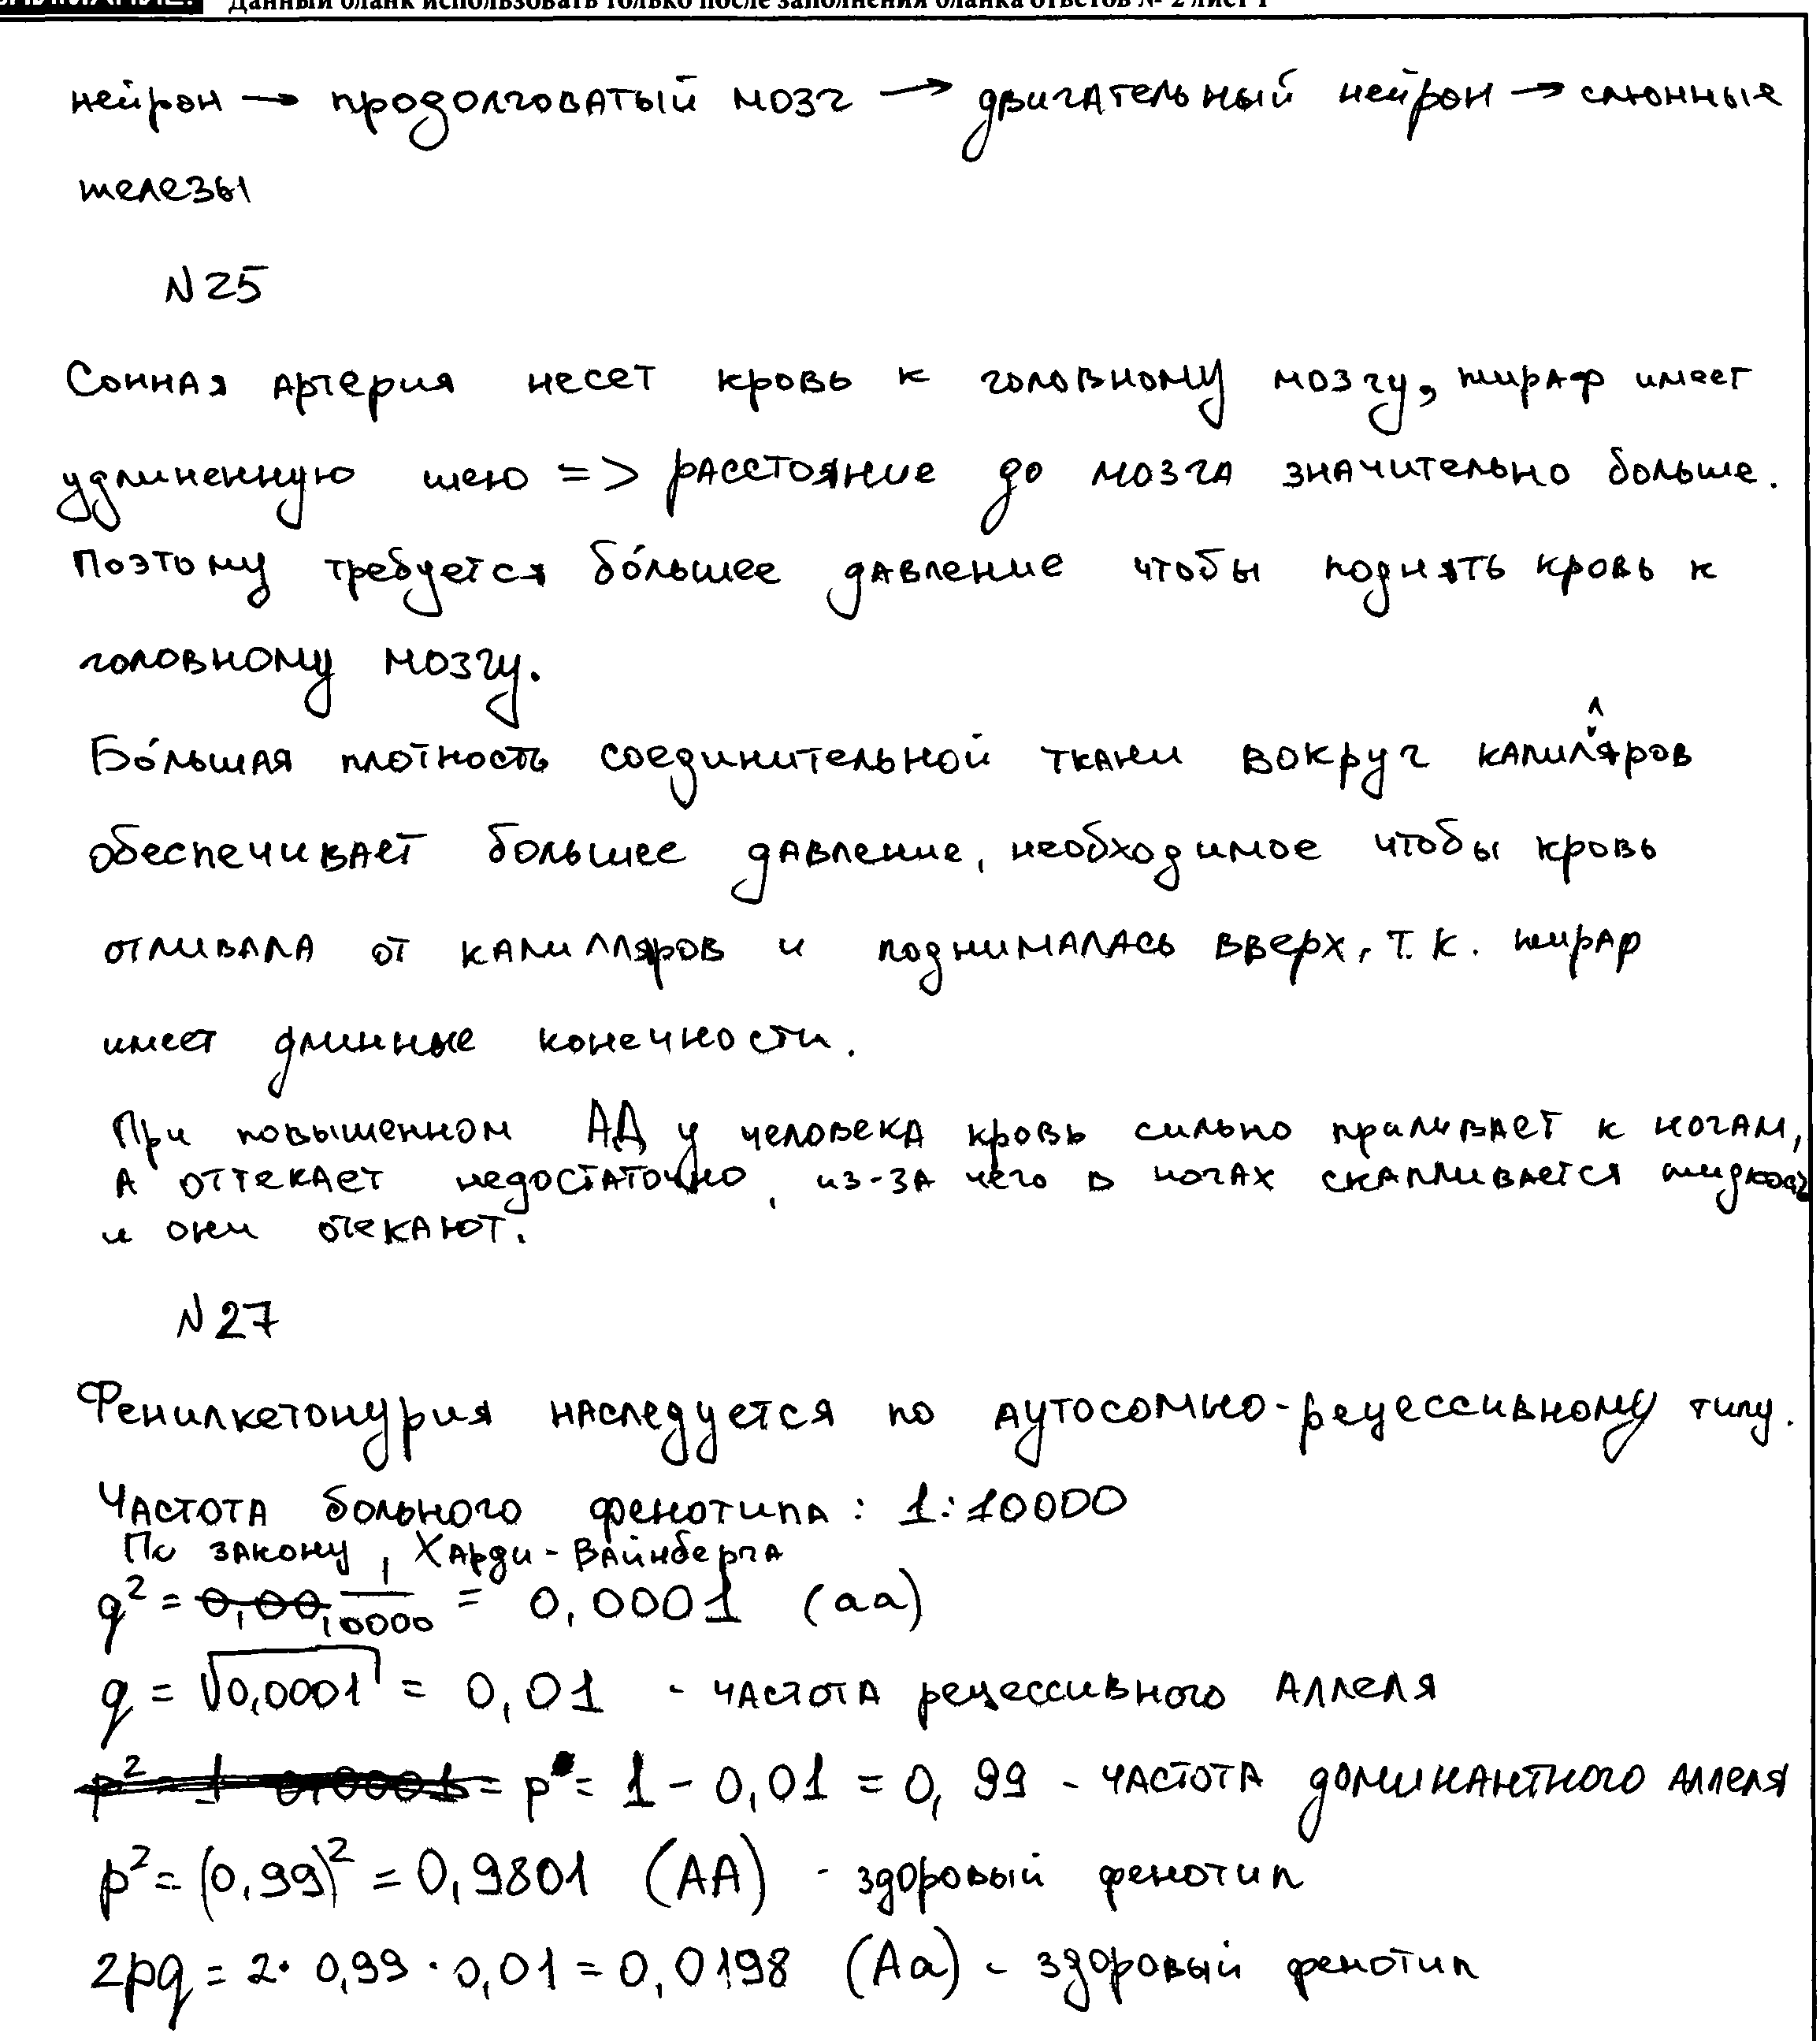 Данный бланк использовать только после заполнения бланка ответов № 2 лист 1
нейрон → продолговатый мозг → двигательный нейрон → слюнные
железы
N 25
Сонная артерия несет кровь к головному мозгу, жираф имеет
удлиненную шею => расстояние до мозга значительно больше.
Поэтому требуется бо́льшее давление чтобы поднять кровь к
головному мозгу.
Бо́льшая плотность соединительной ткани вокруг капилляров
обеспечивает большее давление, необходимое чтобы кровь
отливала от капилляров и поднималась вверх, т.к. жираф
имеет длинные конечности.
При повышенном АД у человека кровь сильно приливает к ногам,
а оттекает недостаточно, из-за чего в ногах скапливается жидкость
и они отекают.
N 27
Фенилкетонурия наследуется по аутосомно-рецессивному типу.
Частота больного фенотипа: 1:10000
По закону Харди-Вайнберга
q² = 1/10000 = 0,0001 (aa)
q = √0,0001 = 0,01 - частота рецессивного аллеля
p = 1 - 0,01 = 0,99 - частота доминантного аллеля
p² = (0,99)² = 0,9801 (AA) - здоровый фенотип
2pq = 2· 0,99 · 0,01 = 0,0198 (Aa) - здоровый фенотип